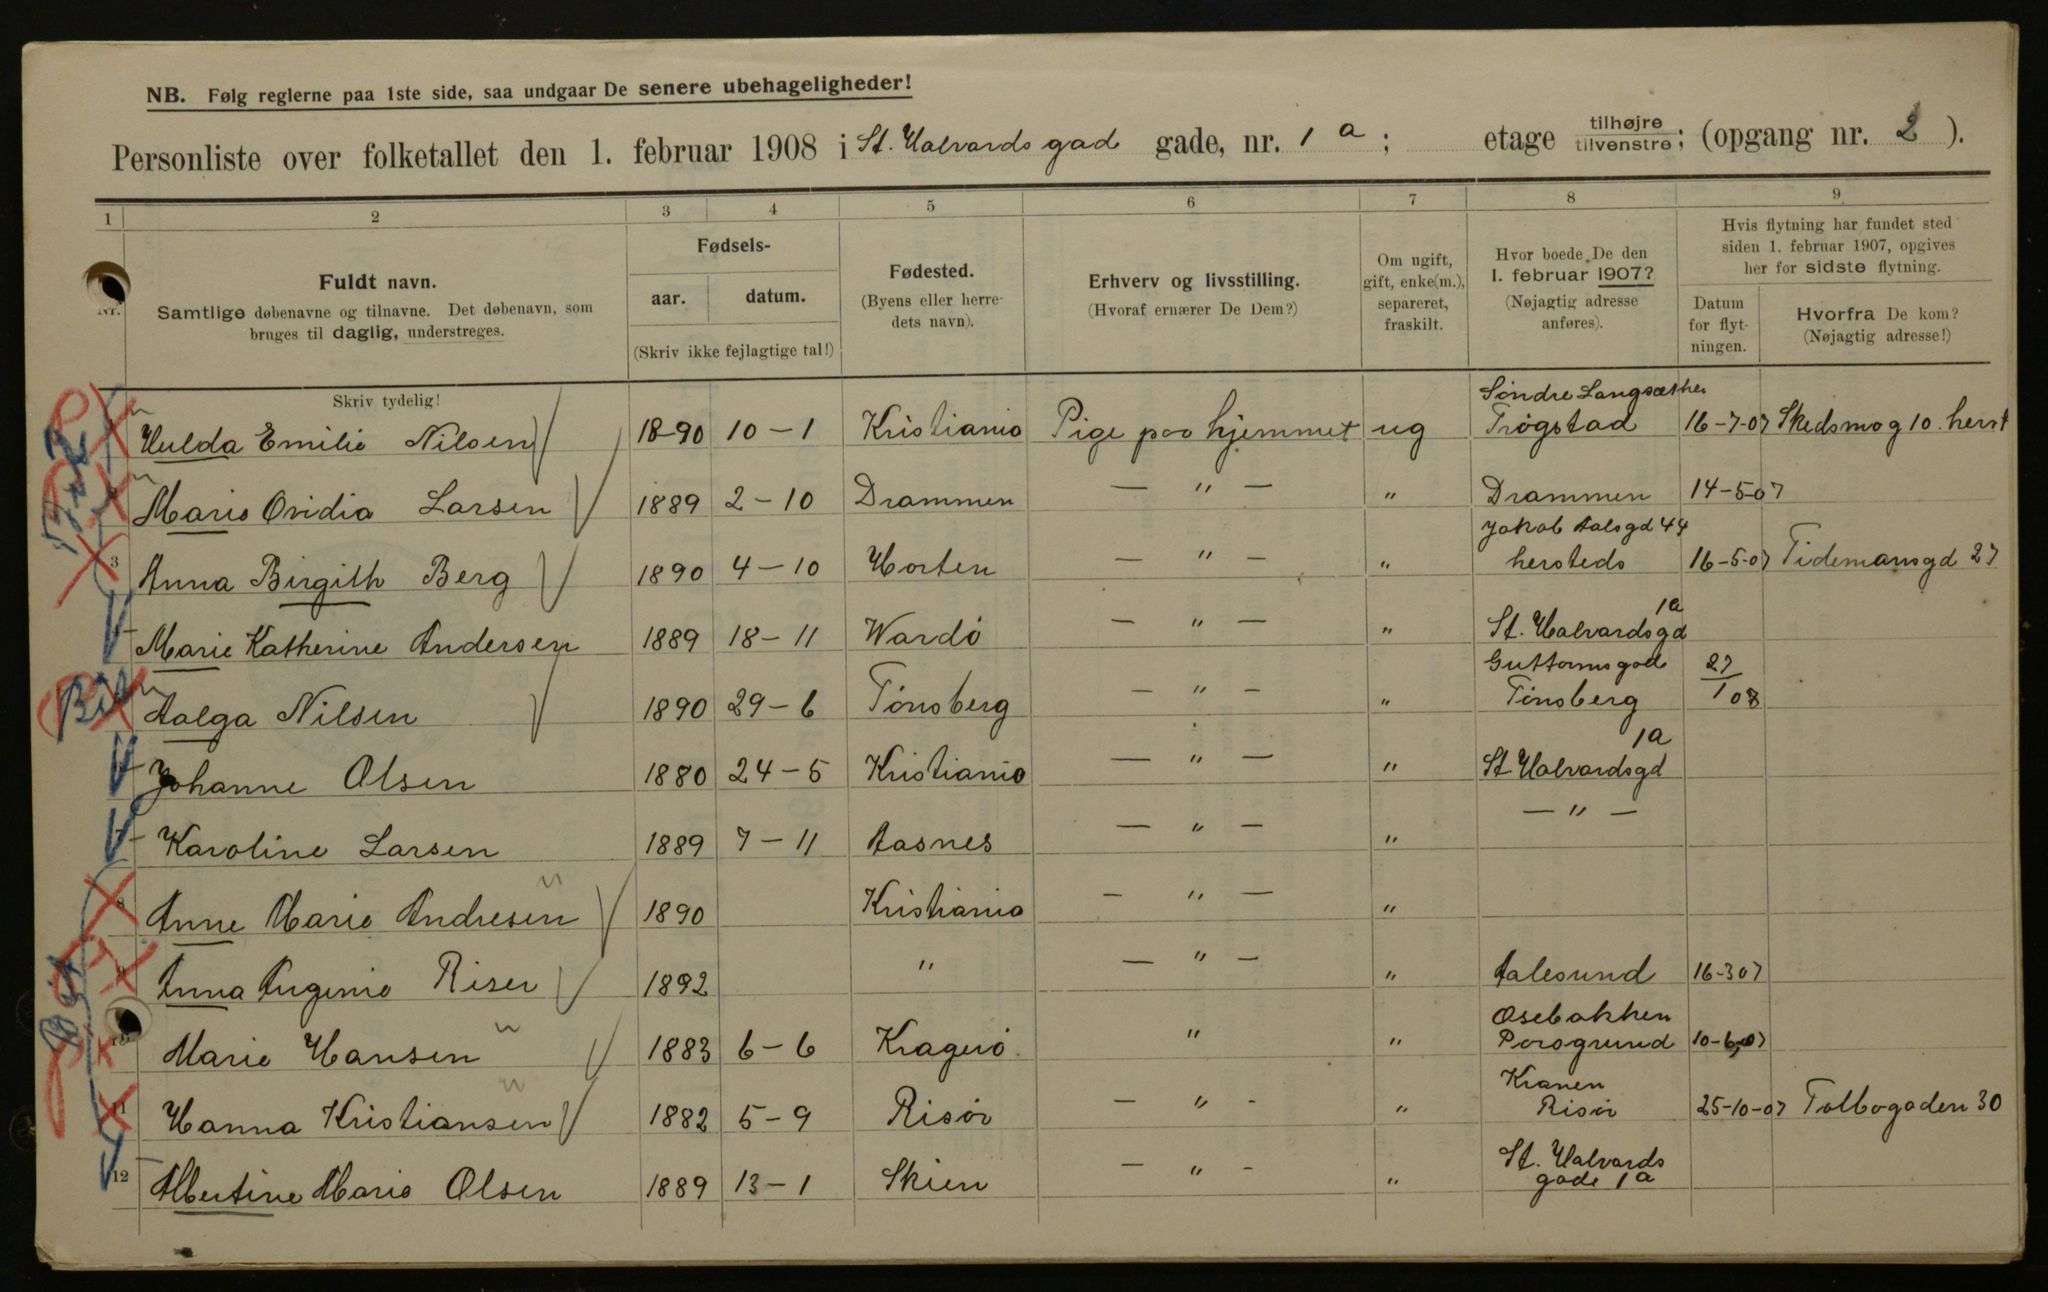 NB. Følg reglerne paa 1ste side, saa undgaar De senere ubehageligheder!
Personliste over folketallet den 1. februar 1908 i St. Halvards gad gade, nr. 1 a; etage tilhøjre tilvenstre; (opgang nr. 2).
1 2 3 4 5 6 7 8 9
Nr.
Fuldt navn.
Samtlige døbenavne og tilnavne. Det døbenavn, som
bruges til daglig, understreges.
Fødsels-
aar. datum.
(Skriv ikke fejlagtige tal!)
Fødested.
(Byens eller herre-
dets navn).
Erhverv og livsstilling.
(Hvoraf ernærer De Dem?)
Om ugift,
gift, enke(m.),
separeret,
fraskilt.
Hvor boede De den
1. februar 1907?
(Nøjagtig adresse
anføres).
Hvis flytning har fundet sted
siden 1. februar 1907, opgives
her for sidste flytning.
Datum
for flyt-
ningen.
Hvorfra De kom?
(Nøjagtig adresse!)
Skriv tydelig!
Hulda Emilie Nilsen 18-90 10-1 Kristiania Pige paa hjemmet ug Söndre Langsæther Trögstad 16-7-07 Skedsmog 10. herst
Marie Ovidia Larsen 1889 2-10 Drammen — " — " Drammen 14-5-07
3 Anna Birgith Berg 1890 4-10 Horten — " — " Jakob Aalsgd 44 hersteds 16-5-07 Tidemansgd 27
Marie Katherine Andersen 1889 18-11 Wardö — " — " St. Halvardsgd 1a
Aalga Nilsen 1890 29-6 Tönsberg — " — " Guttormsgad Tönsberg 27/1 08
Johanne Olsen 1880 24-5 Kristiania — " — " St. Halvardsgd 1a
Karoline Larsen 1889 7-11 Aasnes — " — " — " —
8 Anne Marie Andresen 1890 Kristiania — " — "
9 Anna Augenie Riser 1892 " — " — " Aalesund 16-3 07
10 Marie Hansen 1883 6-6 Kragerö " " Osebakken Porsgrund 10-6-07
11 Hanna Kristiansen 1882 5-9 Risör — " - " Kranen Risör 25-10-07 Tolbogaden 30
12 Albertine Marie Olsen 1889 13-1 Skien — " - " St. Halvards gade 1a